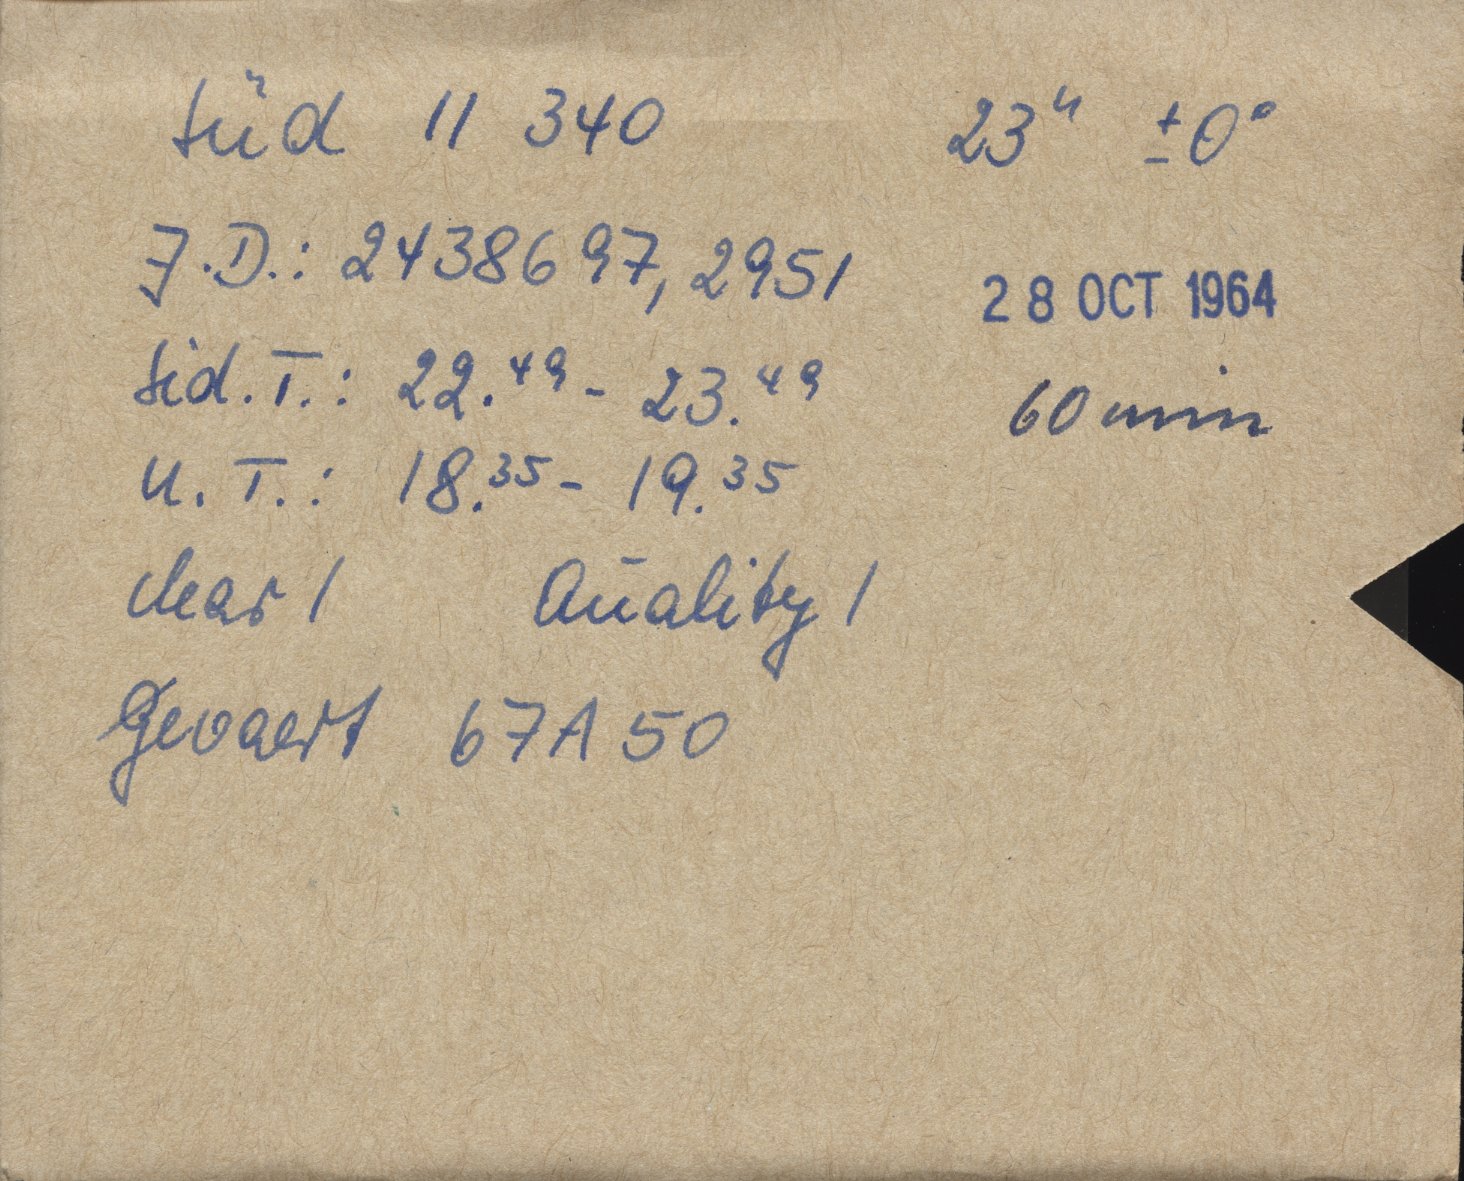 Süd 11 340 23ʰ ±0°
J.D.: 2438697,2951 28 OCT 1964
Sid. T.: 22.⁴⁹ - 23.⁴⁹ 60 min
U. T.: 18.³⁵ - 19.³⁵
clear 1 Quality 1
Gevaert 67A50